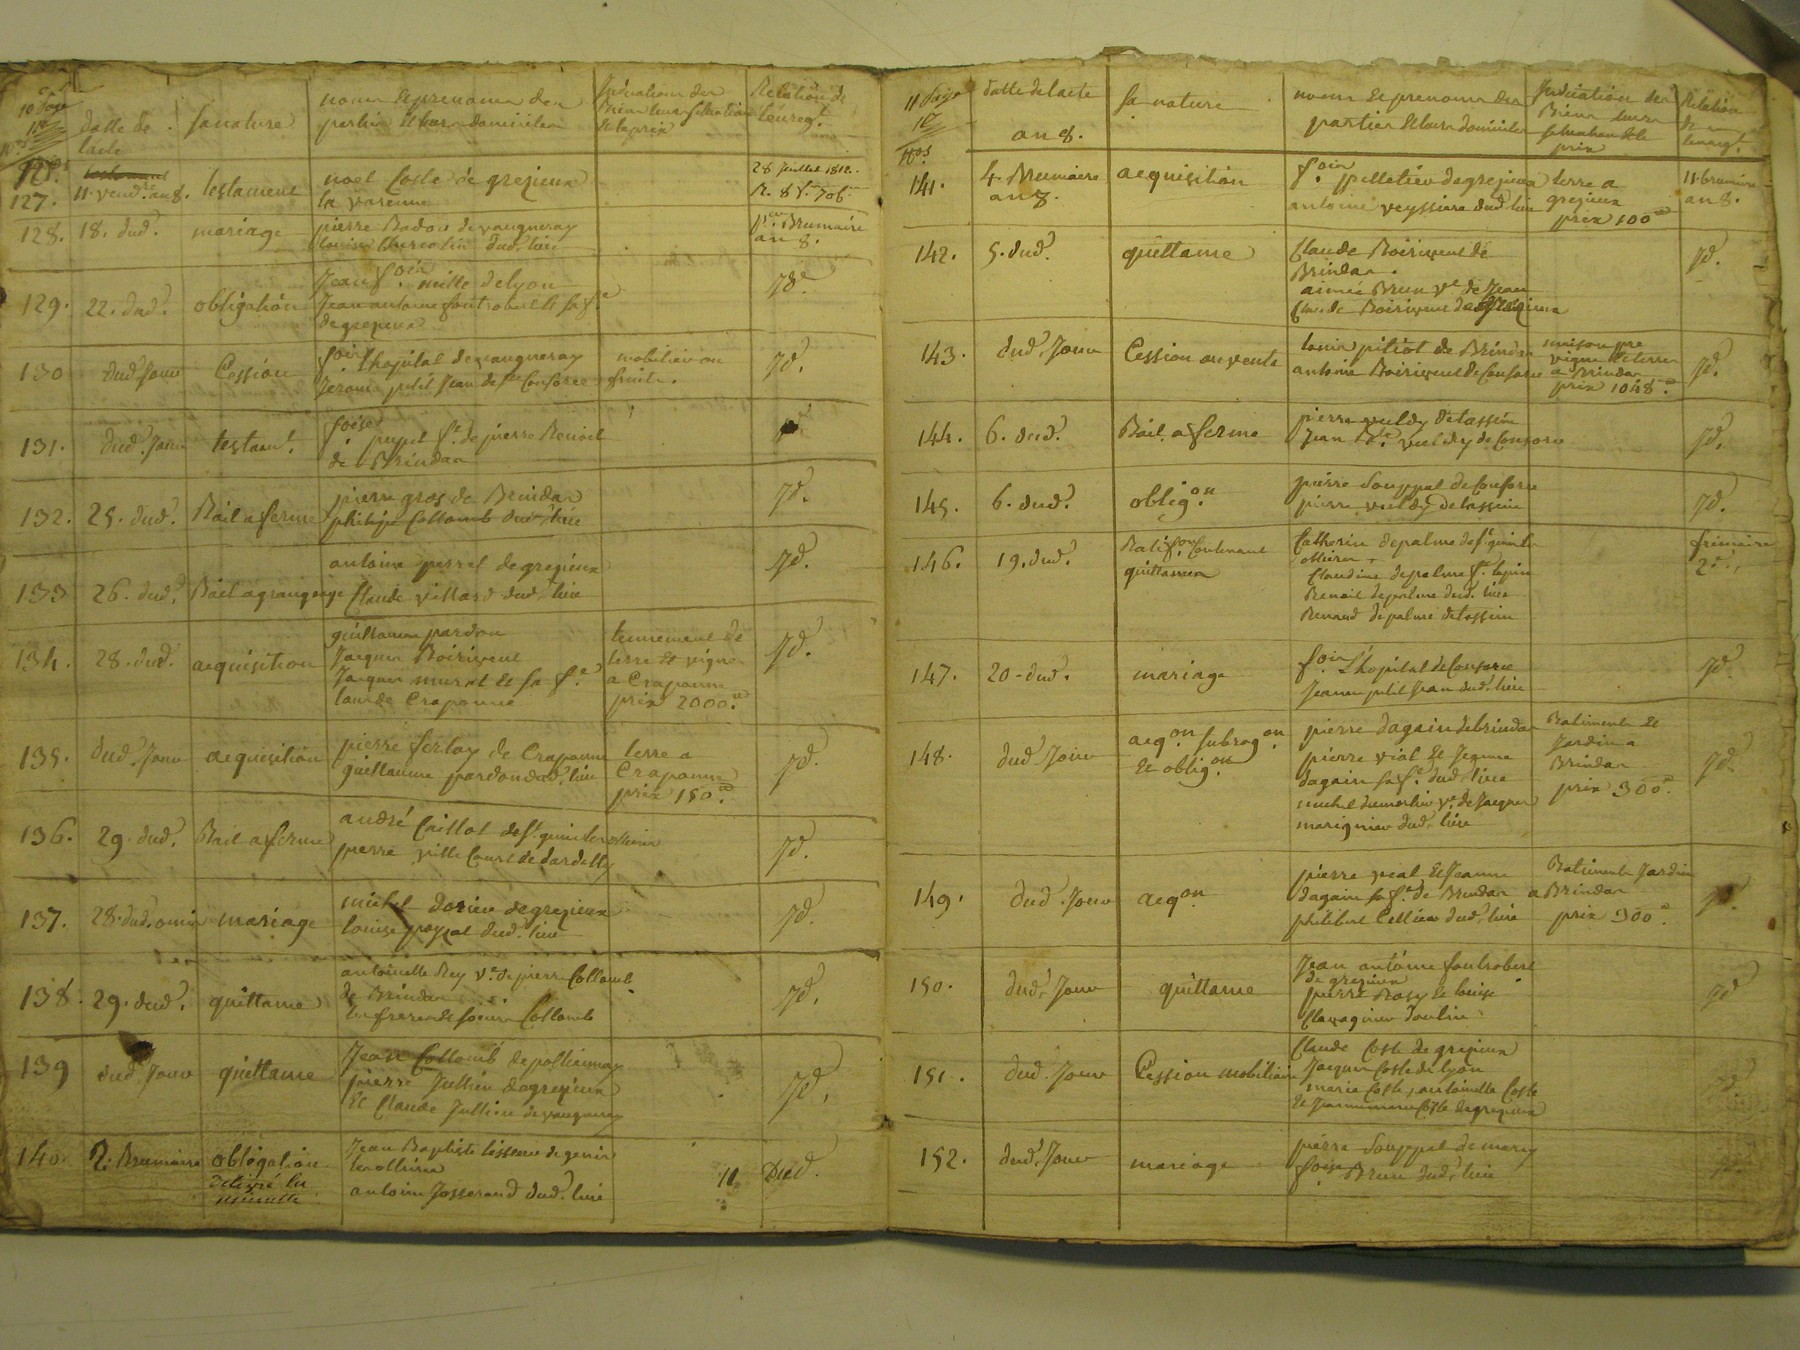 10 page
datte de
l'acte
sa nature
noms et prenoms des
parties et leurs domiciles
Indication des
Biens leurs situation
et le prix
Relation de
l'enreg.t
127.
11. vend.re an 8.
testament
noel Coste de grezieux
la varenne
28 Juillet 1812.
128.
18. dud.
mariage
pierre Badou de vaugneray
dud. lieu
p.er Brumaire
an 8.
129.
22. dud.
obligation
Jean f.ois mille de lyon
Jean antoine fontrobert et sa f.e
de grezieux
Jd.
130
dud. Jour
Cession
f.ois l'hopital de vaugneray
Jerome petit Jean de s.te Consorce
mobilier ou
fruits.
Jd.
131.
dud. Jour
testam.t
f.oise
peyzel f.e de pierre Benoit
de Brindas
132.
25. dud.
Bail a ferme
pierre gros de Brindas
philipe Collomb dud. lieu
Jd.
133
26. dud.
Bail a grangeage
antoine perret de grezieux
Claude villard dud. lieu
Jd.
134.
28. dud.
acquisition
guillaume pardon
Jacques Boiriveut
Jacques murat et sa f.e
tous de Craponne
tennement de
terre et vigne
a Craponne
prix 2000.
Jd.
135.
dud. Jour
acquisition
pierre ferlay de Craponne
guillaume pardon dud. lieu
terre a
Craponne
prix 150.
Jd.
136.
29. dud.
Bail a ferme
andré Caillot de s.t genis les ollieres
pierre ville Court de dardilly
Jd.
137.
28. dud.
mariage
michel dorieu de grezieux
louise dud. lieu
Jd.
138.
29. dud.
quittance
antoinette Rey v.e de pierre Collomb
de Brindas
les freres et soeurs Collomb
Jd.
139
dud. Jour
quittance
Jean Collomb de pollionnay
pierre Jullien de grezieux
et Claude Jullien de vaugneray
Jd.
140.
2. Brumaire
obligation
délivré la
minute
Jean Baptiste tisseur de genis
les ollieres
antoine Josserand dud. lieu
11
Dud.
11 page
N.os
datte de l'acte
an 8.
sa nature
noms et prenoms des
parties et leurs domiciles
Indication des
Biens leurs
situation et le
prix
Relation
de
l'enreg.t
141.
4. Brumaire
an 8.
acquisition
f.ois
pelletier de grezieux
antoine veyssiere dud. lieu
terre a
grezieux
prix 100
11. brumaire
an 8.
142.
5. dud.
quittance
Claude Boiriveut de
Brindas.
aimée Brun v.e de Jean
Cl.de Boiriveut de grezieux
Jd.
143.
dud. Jour
Cession ou vente
louis pitiot de Brindas
antoine Boiriveut de Consorce
maison pré
vigne et terres
a Brindas
prix 1048.
Jd.
144.
6. dud.
Bail a ferme
pierre vuldy de tassin
Jean vuldy de Consorce
Jd.
145.
6. dud.
oblig.on
pierre Souppat de Consorce
pierre vuldy de tassin
Jd.
146.
19. dud.
Ratif.on Contenant
quittances
Catherine depalme de s.t genis les
ollieres
Claudine depalme f.e lapin
Benoit depalme dud. lieu
Renaud depalme de tassin
frimaire
2
147.
20. dud.
mariage
f.ois L'hopital de Consorce
Jeanne petit Jean dud. lieu
Jd.
148.
dud. Jour
acq.on subrog.on
et oblig.on
pierre dagain de brindas
pierre vial et Jeanne
dagain sa f.e dud. lieu
michel dumortier v.e de Jacques
marignier dud. lieu
Batiments et
Jardin a
Brindas
prix 300.
Jd.
149.
dud. Jour
acq.on
pierre vial et Jeanne
dagain sa f.e de Brindas
philibert Cellier dud. lieu
Batiments Jardin
a Brindas
prix 300.
Jd.
150.
dud. Jour
quittance
Jean antoine fontrobert
de grezieux
pierre Rosy et louise
Clavagnier d'oulin
Jd
151.
dud. Jour
Cession mobiliaire
Claude Coste de grezieux
Jacques Coste de lyon
marie Coste, antoinette Coste
et Coste de grezieux
Jd.
152.
dud. Jour
mariage
pierre Souppat de marcy
f.oise Brun dud. lieu